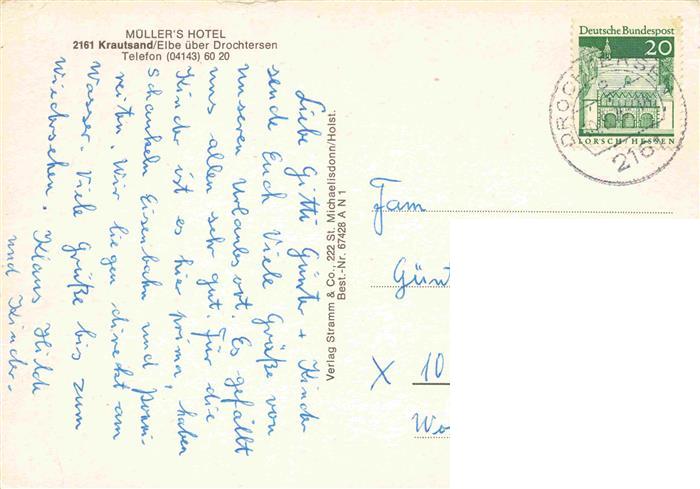 MÜLLER'S HOTEL
2161 Krautsand/Elbe über Drochtersen
Telefon (04143) 60 20
Liebe Gitti Günter + Kinder
sende Euch Viele Grüße von
unseren Urlaubsort. Es gefällt
uns allen sehr gut. Für die
Kinder ist es hier prima, haben
Schaukeln Eisenbahn und Poni-
reiten. Wir liegen direkt am
Wasser. Viele Grüße bis zum
Wiedersehen. Klaus Hilde
und Kinder.
Verlag Stramm & Co., 222 St. Michaelisdonn/Holst.
Best.-Nr. 67428 A N 1
Deutsche Bundespost
20
LORSCH/HESSEN
DROCHTERSEN
216
Fam
Günt
X 10
Wo